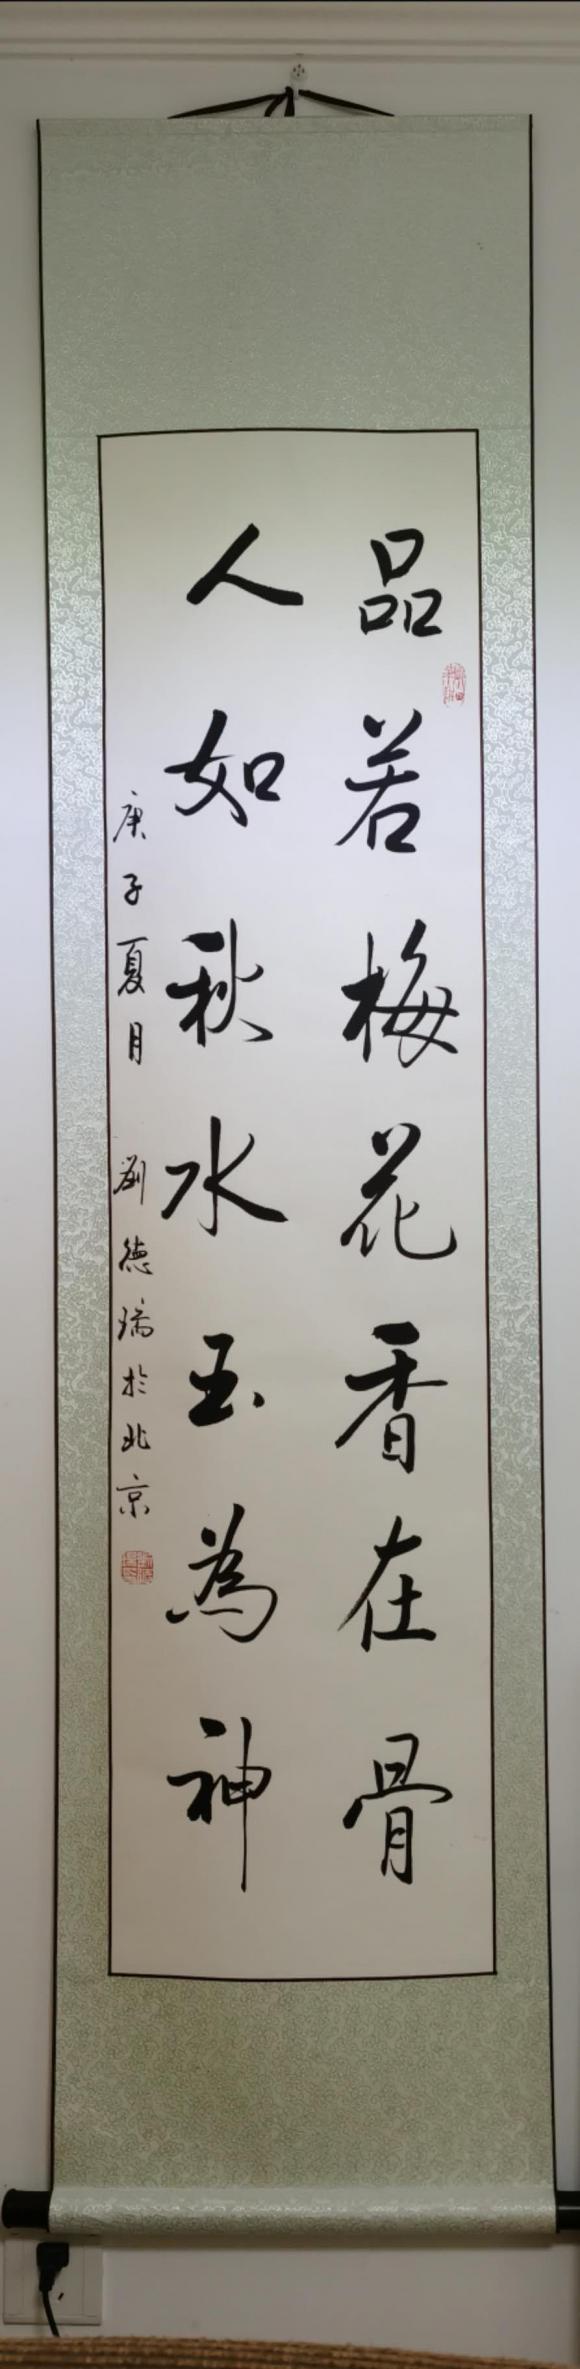 品若梅花香在骨
人如秋水玉為神
庚子夏月 劉德瑞於北京